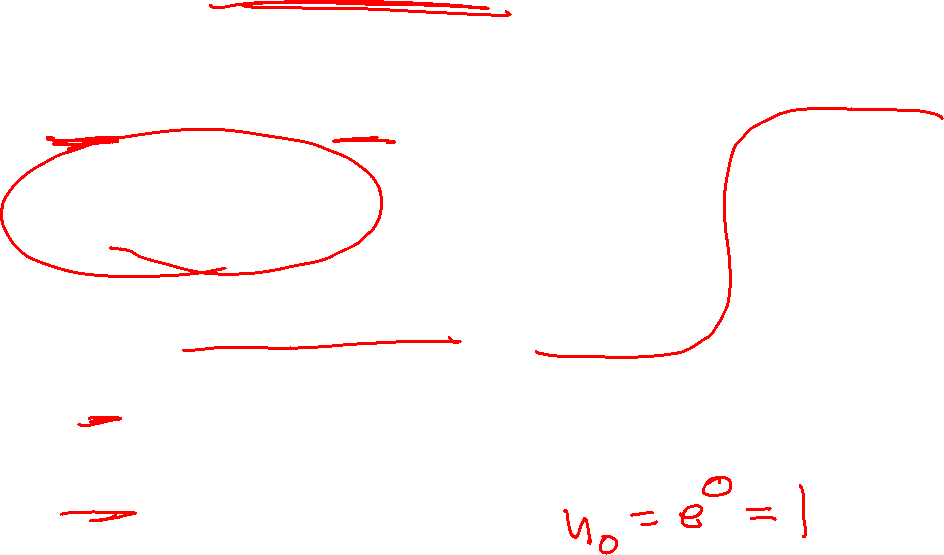 u₀ = e⁰ = 1